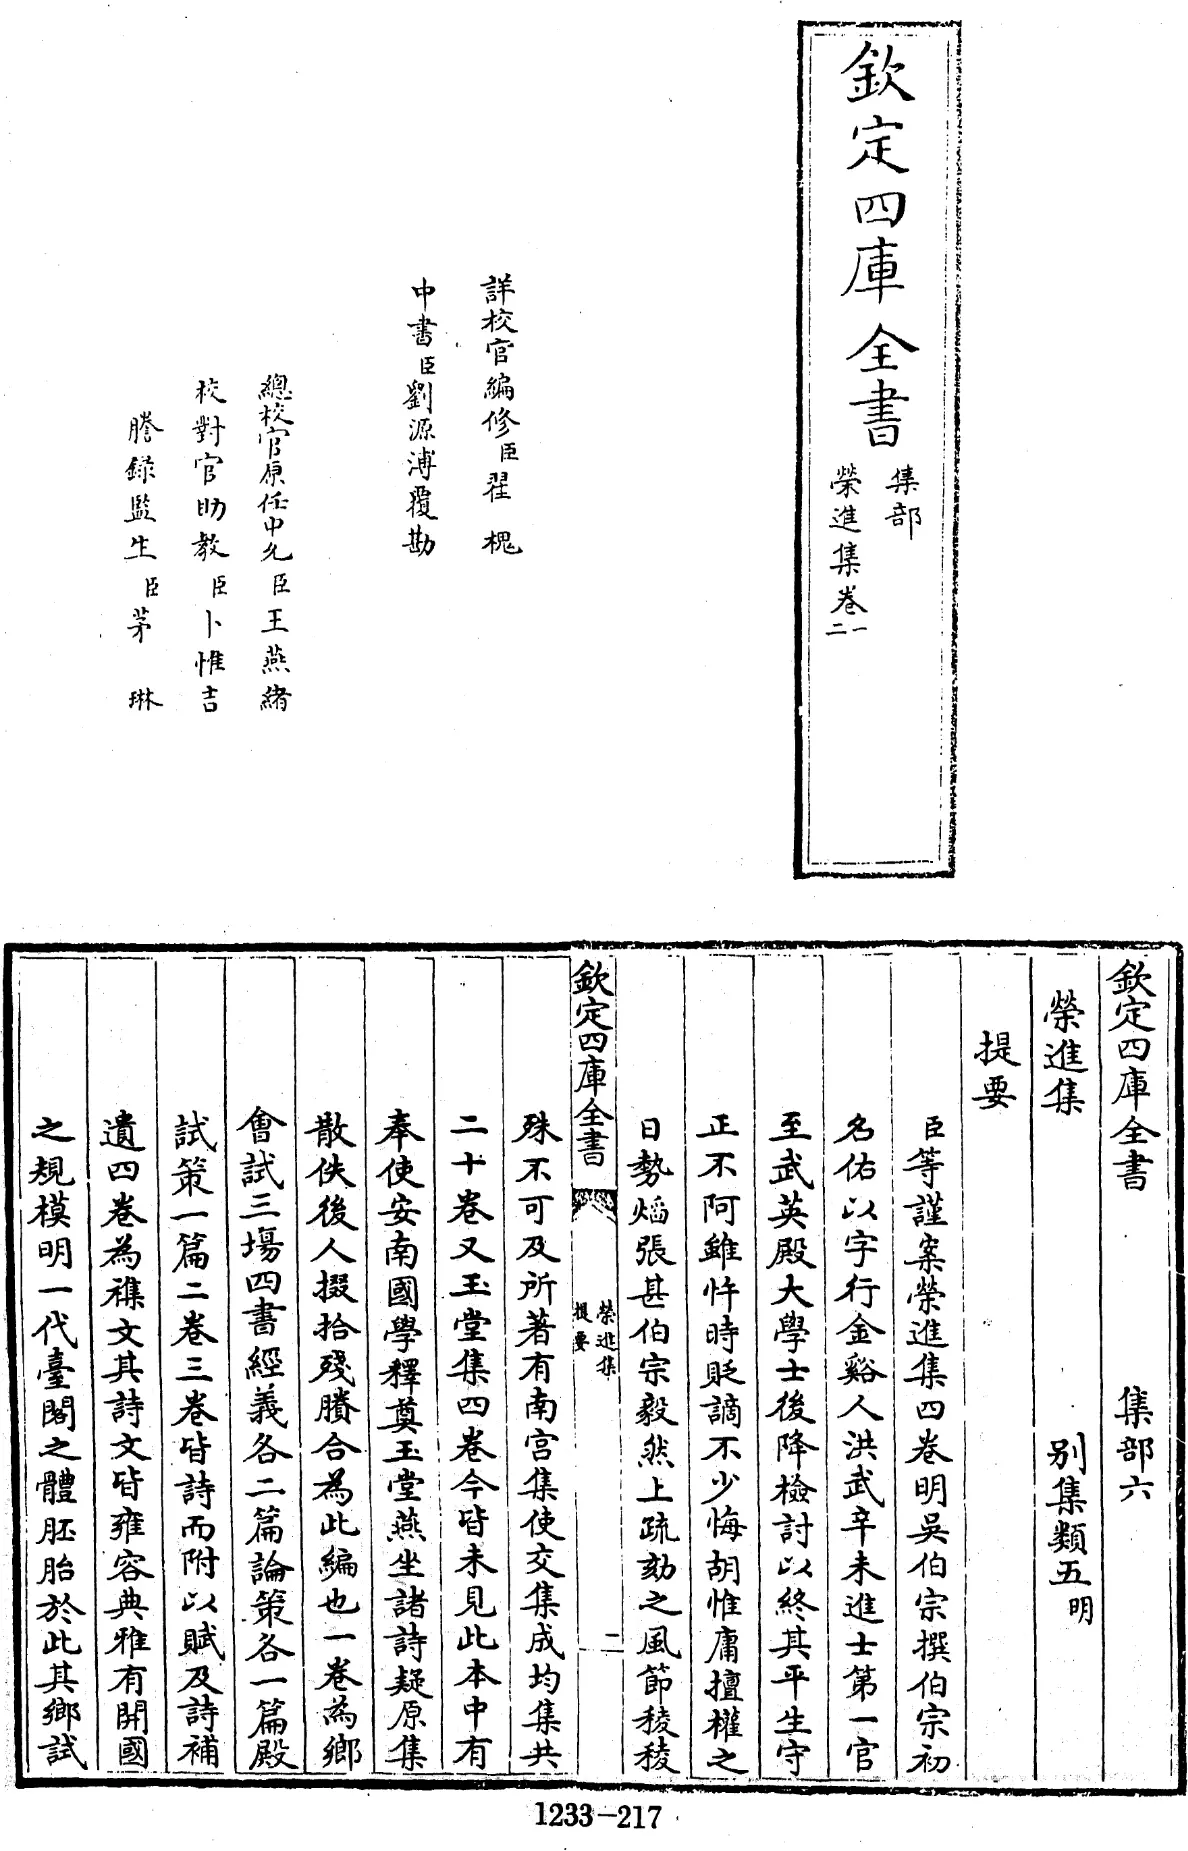 欽定四庫全書
集部
榮進集卷一二
詳校官編修臣翟槐
中書臣劉源溥覆勘
總校官原任中允臣王燕緒
校對官助教臣卜惟吉
謄錄監生臣茅琳
欽定四庫全書 集部六
榮進集 别集類五明
提要
臣等謹案榮進集四卷明吳伯宗撰伯宗初
名佑以字行金谿人洪武辛未進士第一官
至武英殿大學士後降檢討以終其平生守
正不阿雖忤時貶謫不少悔胡惟庸擅權之
日勢焰張甚伯宗毅然上疏劾之風節稜稜
欽定四庫全書
榮進集
提要
二
殊不可及所著有南宫集使交集成均集共
二十卷又玉堂集四卷今皆未見此本中有
奉使安南國學釋奠玉堂燕坐諸詩疑原集
散佚後人掇拾殘賸合為此編也一卷為鄉
會試三場四書經義各二篇論策各一篇殿
試策一篇二卷三卷皆詩而附以賦及詩補
遺四卷為襍文其詩文皆雍容典雅有開國
之規模明一代臺閣之體胚胎於此其鄉試
1233-217